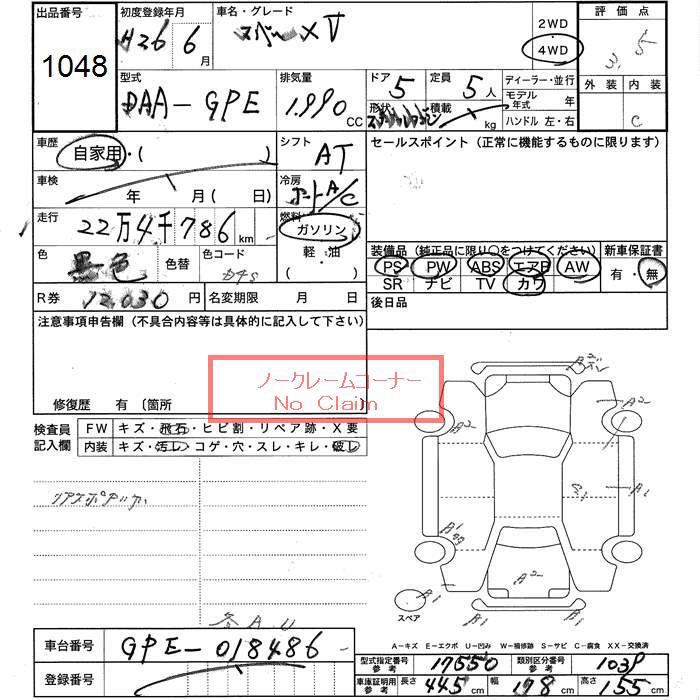 出品番号
1048
初度登録年月
H26 6月
車名・グレード
スバル XV
2WD
4WD
評価点
3.5
外装 内装
C
型式
DAA-GPE
排気量
1,990 CC
ドア 5
形状
定員 5人
積載
kg
ディーラー・並行
モデル年式 年
ハンドル 左・右
車歴
自家用・( )
シフト
AT
セールスポイント(正常に機能するものに限ります)
車検
年 月(日)
冷房
オートA/C
走行
22万4千786 km
燃料
ガソリン
軽・油
( )
色
黒色
色替
色コード
D4S
装備品(純正品に限り○をつけてください)
PS PW ABS エアB AW
SR ナビ TV カワ
新車保証書
有・無
R券 12,030 円
名変期限 月 日
後日品
注意事項申告欄(不具合内容等は具体的に記入して下さい)
ノークレームコーナー
No Claim
修復歴 有 〔箇所 〕
検査員記入欄
FW キズ・飛石・ヒビ割・リペア跡・X要
内装 キズ・汚レ・コゲ・穴・スレ・キレ・破レ
リアスポイラー
各A.U
A2
A2
A1
A1
A2
A1
A1
スペア
A-キズ E-エクボ U-凹み W-補修跡 S-サビ C-腐食 XX-交換済
車台番号
GPE-018486
登録番号
型式指定番号参考 17550
類別区分番号参考 1039
車庫証明用参考 長さ 445 cm 幅 178 cm 高さ 155 cm